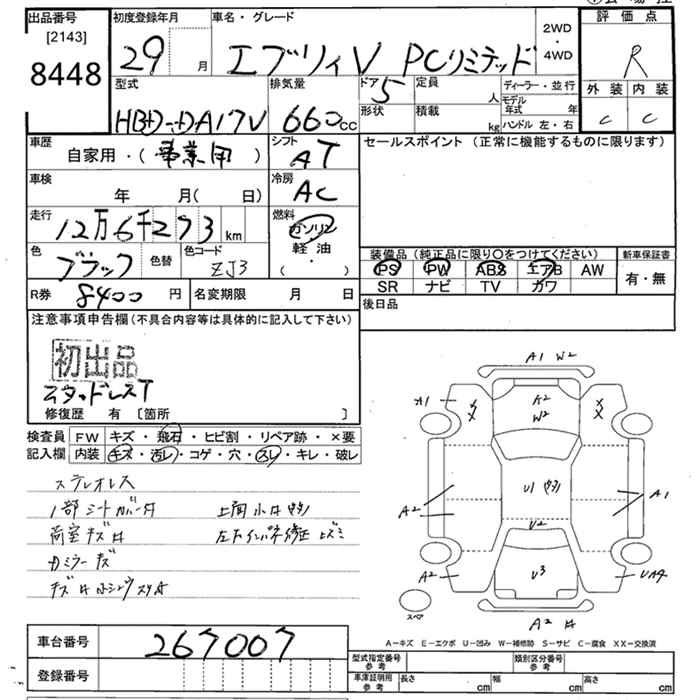 出品番号 初度登録年月 車名・グレード 評価点
[2143]
8448
29 月 エブリィV PCリミテッド 2WD・4WD R
型式 排気量 ドア 5 定員 人 ディーラー・並行 外装 内装
HBD-DA17V 660cc 形状 積載 kg モデル年式 年 C C
ハンドル 左・右
車歴 シフト セールスポイント (正常に機能するものに限ります)
自家用・(事業用) AT
車検 冷房
年 月( 日) AC
走行 燃料
12万6千273 km ガソリン
軽・油
( ・ )
色 ブラック 色替 色コード ZJ3
装備品 (純正品に限り〇をつけてください) 新車保証書
PS PW ABS エアB AW 有・無
SR ナビ TV カワ
R券 8400 円 名変期限 月 日
後日品
注意事項申告欄(不具合内容等は具体的に記入して下さい)
初出品
スタッドレスT
修復歴 有 [箇所 ]
検査員 FW キズ・飛石・ヒビ割・リペア跡・×要
記入欄 内装 キズ・汚レ・コゲ・穴・スレ・キレ・破レ
ステレオレス
1部シートカバー付 上開小キズ
荷室キズ 左下インパネ修正
Dミラーキズ
A1 W2
A1 XX A2 W2 XX
A2 U1 A1
U2
A2 U3 UA4
スペア A2
A-キズ E-エクボ U-凹み W-補修跡 S-サビ C-腐食 XX-交換済
車台番号 267007
登録番号
型式指定番号 参考 類別区分番号 参考
車庫証明用 参考 長さ cm 幅 cm 高さ cm